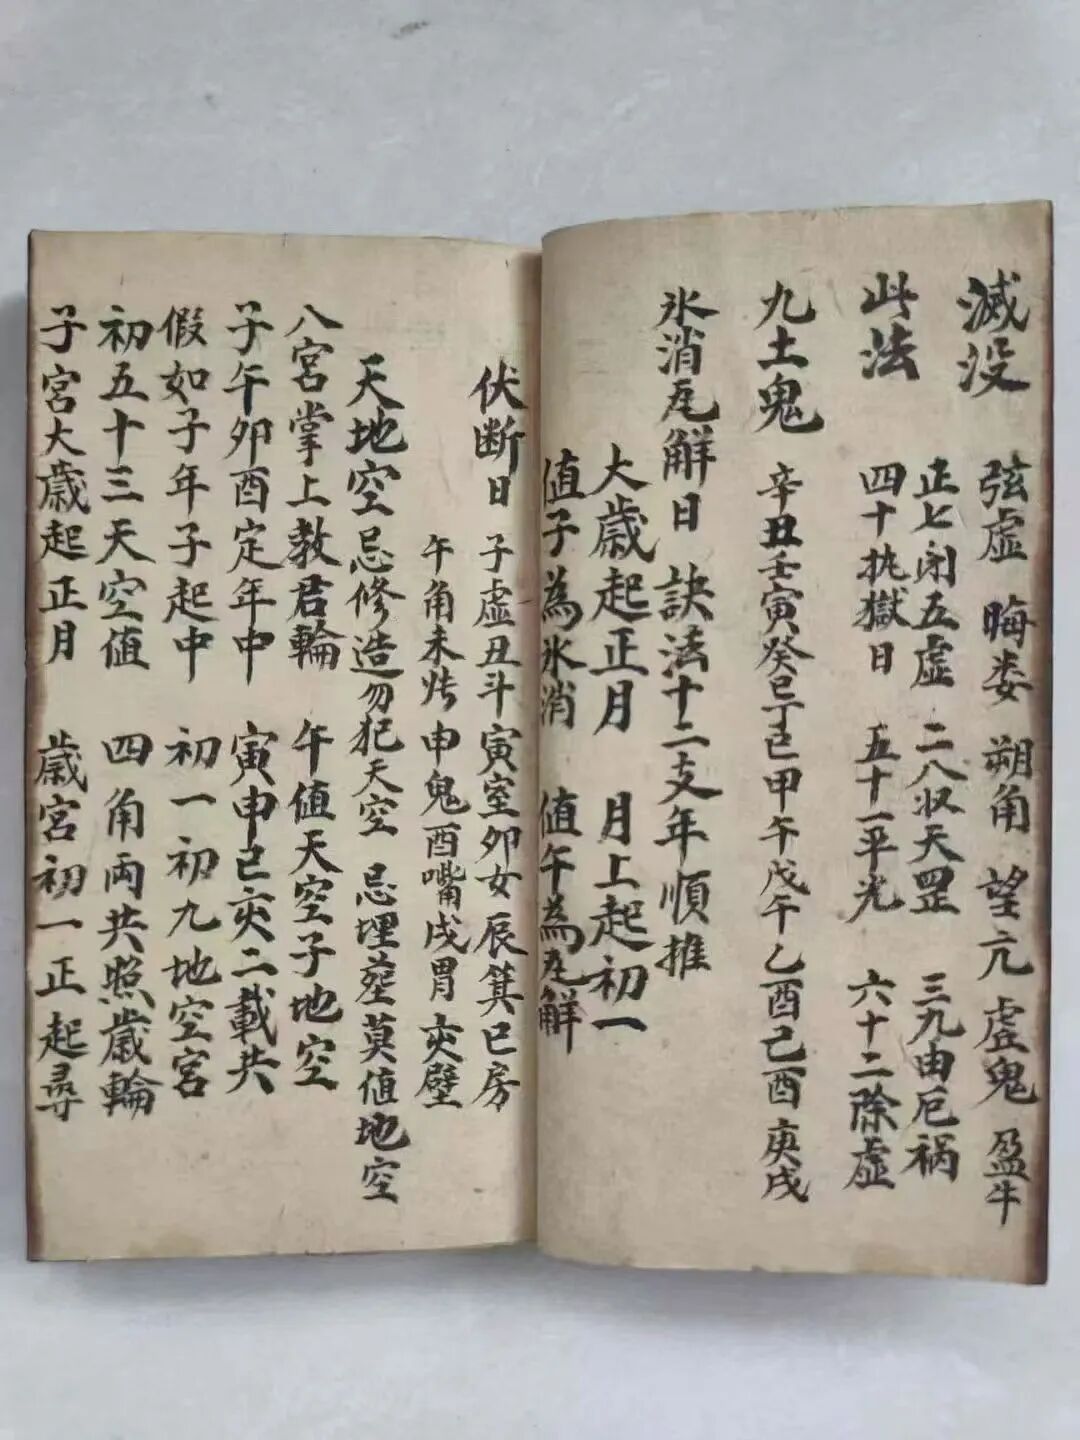 滅没 弦虚 晦娄 朔角 望亢 虚鬼 盈牛
此法 正七闭五虚 二八収天罡 三九由厄祸
四十执獄日 五十一平光 六十二除虚
九土鬼 辛丑壬寅癸巳丁巳甲午戊午乙酉己酉庚戌
氷消瓦解日 訣法十二支年順推
大歳起正月 月上起初一
值子為氷消 值午為瓦解
伏断日 子虚丑斗寅室卯女辰箕巳房
午角未 申鬼酉嘴戌胃亥壁
天地空 忌修造勿犯天空 忌埋塟莫值地空
八宮掌上教君輪 午值天空子地空
子午卯酉定年中 寅申巳亥二載共
假如子年子起中 初一初九地空宮
初五十三天空值 四角両共照歳輪
子宮大歳起正月 歳宮初一正起尋